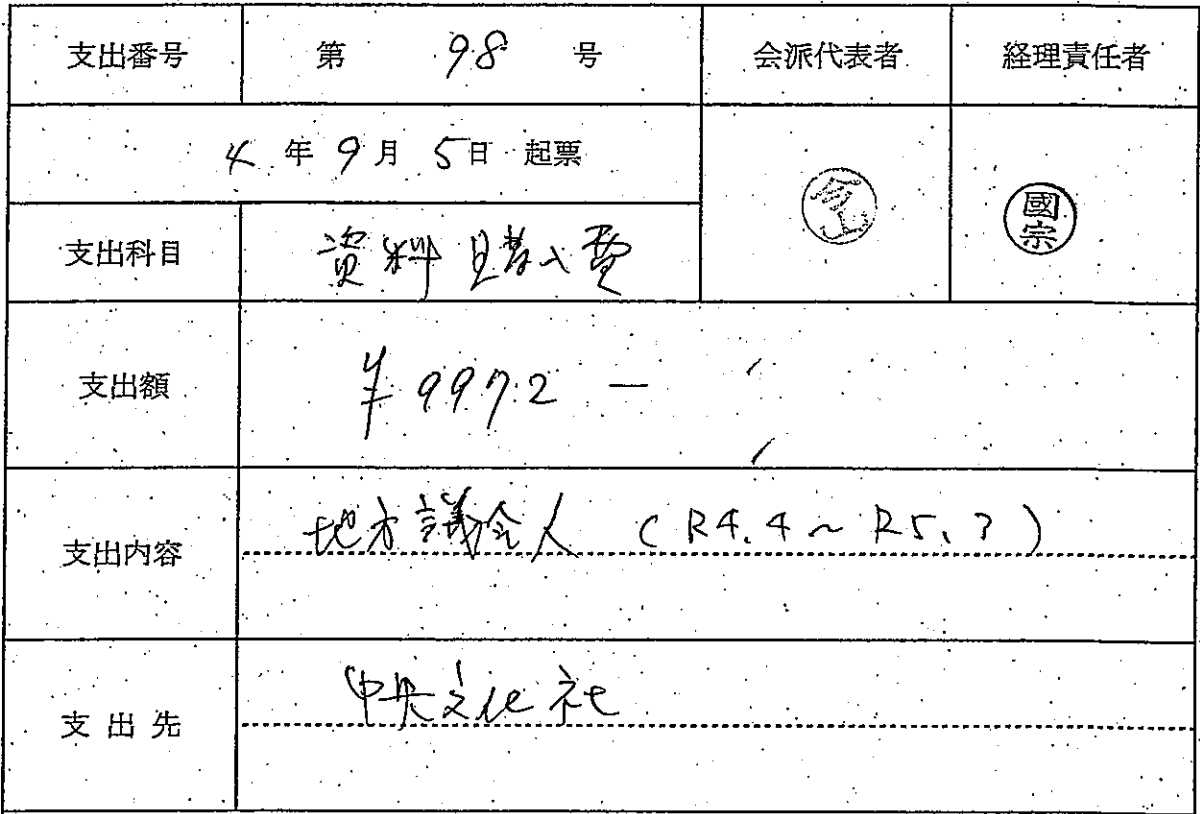 支出番号 第 98 号 会派代表者 経理責任者
4 年 9 月 5 日 起票
國宗
支出科目 資料購入費
支出額 ¥9972 ー
支出内容 地方議会人 (R4.4～R5.3)
支出先 中央文化社